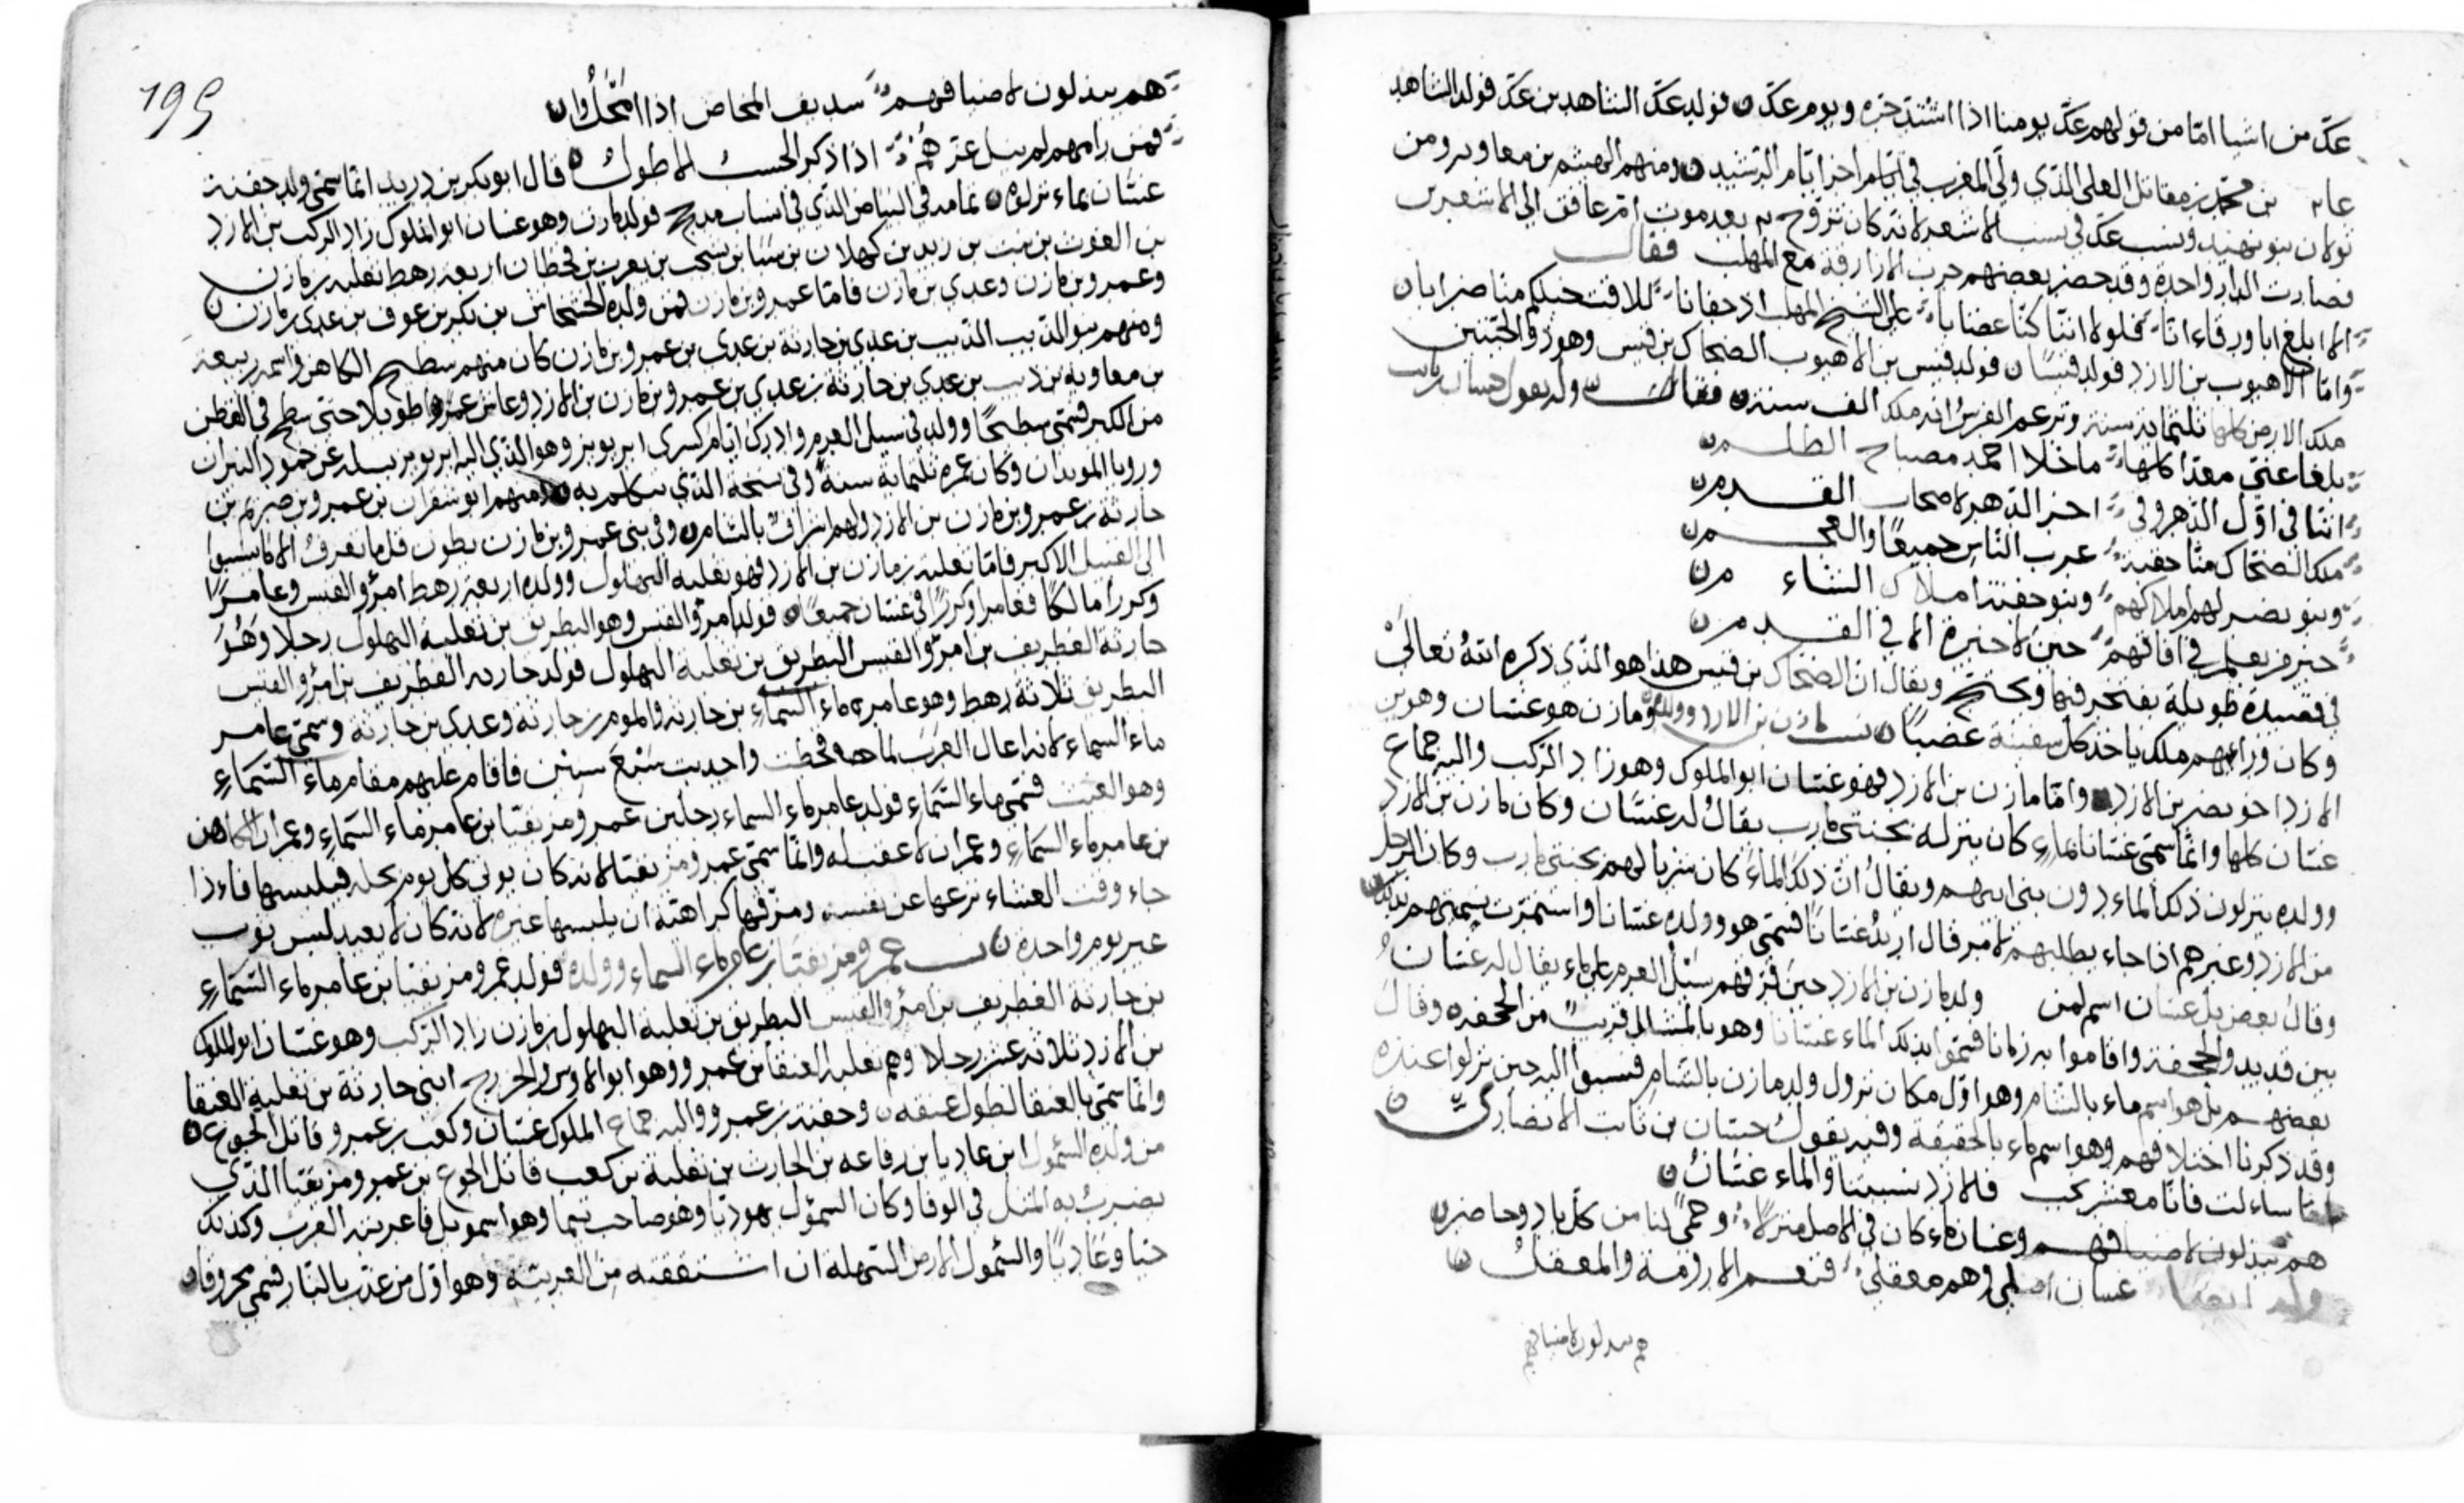 عكّ من اشيا امّا من قولهم عكّ يومنا اذا اشتدّ حرّه ويوم عكّ ن فولد عكّ الشاهد بن عكّ فولد الشاهد
بن محمّد بن مقاتل العلي الذي ولّى المغرب في ايّام احر ايّام الرشيد ن ومنهم الهيثم بن معاوية ومن
نولان بنو نهيد ونسب عكّ في نسب الاشعر لانه كان تزوّج بعد موت امّ غافق الى الاشعرين
فصارت الدار واحدة وقد حضر بعضهم حرب الازارقة مع المهلب فقال
الا ابلغ ابا ورقاء انا فلولا اننا كنا غضابا على الشيخ المهلب اذ جفانا للاقت خيلكم منا ضرابا ن
وامّا الاهبوب بن الازد فولد قيسًا ن فولد قيس بن الاهبوب الضحاك بن قيس وهو ذو الحيّتين
ملك الارض كلها ثلثمائة سنة وتزعم الفرس انه ملك الف سنة وله يقول حسان بن ثابت
بلغا عني معدّا كلها ما خلا احمد مصباح الظلم ن
اننا في اوّل الدهر وفي اخر الدهر لاصحاب القدم ن
ملك الضحّاك منّا حقبة عرب الناس جميعًا والعجم ن
وبنو نصر لهم املاكهم وبنو جفنة املاك الشاءم ن
حين لا حيرة الا في القدم ن
في قصيدة طويلة يفتخر فيها ويحتج ويقال انّ الضحاك بن قيس هذا هو الذي ذكره الله تعالى
وكان وراءهم ملك ياخذ كل سفينة غصبًا ن نسب مازن بن الازد وولده ومازن هو غسّان وهو بن
الازد اخو نصر بن الازد وامّا مازن بن الازد فهو غسّان ابو الملوك وهو زاد الركب واليه جماع
غسّان كلها وانّما سمّي غسّانا بماءٍ كان ينزله بجنتي مارب يقالُ له غسّان وكان مازن بن الازد
وولده ينزلون ذلك الماء دون بني ابيهم ويقالُ انّ ذلك الماءَ كان شربا لهم بجنتي مارب وكان الرجل
من الازد وغيرهم اذا جاء يطلبهم لامر قال اريدُ غسّانًا فسمّي هو وولده غسّانا واستمرّت تسميتهم بذلك ن
وقالَ بعض بل غسّان اسم لمن ولد مازن بن الازد حين فرّقهم سَيْلُ العرم على ماء يقال له غسّان
بين قديد والجحفة واقاموا به زمانا فسمّوا بذلك الماء غسّانا وهو بالمشلل قريبٌ من الجحفه وقال
بعضهم بل هو اسم ماء بالشام وهو اوّل مكان نزول ولد مازن بالشام فنسبوا اليه حين نزلوا عنده
وقد ذكرنا اختلافهم وهو اسم ماء بالحقيقة وفيه يقول حسّان بن ثابت الانصاري ن
امّا ساءلت فانّا معشر نجب فالازد نسبتنا والماء غسّانُ ن
وغسان ماء كان في الاصل منزلًا وحمىً لنا من كلّ باد وحاضر ن
غسان اصلي وهم معقلي فنعم الارومة والمعقلُ ن
هم يبذلون لاضيافهم
199
هم يبذلون لاضيافهم سديف المخاض اذا امحلُوا ن
فمن رامهم لم ينل عزّهُم اذا ذكر الحسب الاطولُ ن قال ابو بكر بن دريد انّما سمّي ولد جفنة
غسّان بماء نزلوه ن تمامه في البياض الذي في انساب مذحج فولد مازن وهو غسان ابو الملوك زاد الركب بن الازد
بن الغوث بن نبت بن زيد بن كهلان بن سَبا بن يشجب بن يعرب بن قحطان اربعة رهط ثعلبة بن مازن
وعمرو بن مازن وعدي بن مازن فامّا عمرو بن مازن فمن ولده الخشخاش بن بكر بن عوف بن عدي بن مازن ن
ومنهم بنو الذيب الذيب بن عدي بن حارثة بن عدي بن عمرو بن مازن كان منهم سطيح الكاهن واسمه ربيعة
بن معاوية بن ذيب بن عدي بن حارثة بن عدي بن عمرو بن مازن بن الازد وعاش عمرًا طويلا حتى سطح في القطن
من الكبر فسمّي سطيحًا وولد في سيل العرم وادرك ايّام كسرى ابرويز وهو الذي اليه ابرويز يسله عن خمود النيران
ورويا الموبذان وكان عمره ثلثماية سنة وفي سجعه الذي تكلم به ن ومنهم ابو شقران بن عمرو بن صريم بن
حارثة بن عمرو بن مازن بن الازد ولهم شرافٌ بالشام ن وفي بني عمرو بن مازن بطون قلما تعرفُ الا ما نسبوا
الى القبيل الاكبر فامّا ثعلبة بن مازن بن الازد فهو ثعلبة البهلول وولده اربعة رهط امرؤ القيس وعامرًا
وكررا مالكًا فعامر وكررًا في غسّان جميعًا ن فولد امرؤ القيس وهو البطريق بن ثعلبة البهلول رجلا وَهُوَ
حارثة الغطريف بن امرؤ القيس البطريق بن ثعلبة البهلول فولد حارثه الغطريف بن امرؤ القيس
البطريق ثلاثة رهط وهو عامر ماء السماءِ بن حارثه والموم بن حارثة وعدي بن حارثة وسمّي عامر
ماء السماء لانه اعال العَرَبَ لما قحطت واجدبت سَبْعَ سنين فاقام عليهم مقام ماء السّمَاءِ
وهو الغيث فسمّي ماء السّماءِ فولد عامر ماء السماء رجلين عمرو مزيقيا بن عامر ماء السّماءِ وعمران الكاهن
بن عامر ماء السّماءِ وعمران لا عقب له وانّما سمّي عمرو مزيقيا لانه كان يوتي كل يوم بحلة فيلبسها فاءذا
جاء وقت العشاء نزعها عن نفسه ومزّقها كراهته ان يلبسها غيره لانه كان لا يعيد لبس ثوب
غير يوم واحدة ن نسب عمرو مزيقيا بن عامر ماء السماء وولده فولد عمرو مزيقيا بن عامر ماء السّمَاءِ
بن حارثة الغطريف بن امرؤ القيس البطريق بن ثعلبة البهلول بن مازن زاد الركب وهو غسّان ابو الملوك
بن الازد ثلاثه عشر رجلا وهم ثعلبه العنقا بن عمرو وهو ابو الاوس والخزرج ابني حارثة بن ثعلبة العنقا
وانّما سمّي بالعنقا لطول عنقه ن وجفنة بن عمرو واليه جماع الملوك غسّان وكعب بن عمرو قاتل الجوع ن
من ولده السّمول ابن عاديا بن رفاعه بن الحارث بن ثعلبة بن كعب قاتل الجوع بن عمرو مزيقيا الذي
يضربُ به المثل في الوفا وكان السموَل يهوديّا وهو صاحب تيما وهو اسمويل فاعربته العرب وكذلك
حيا وعَاديًا والسّمول الارض السّهله ان اشتققته من العربيّة وهو اوّل من عذّب بالنّار فسمي محروقا ن